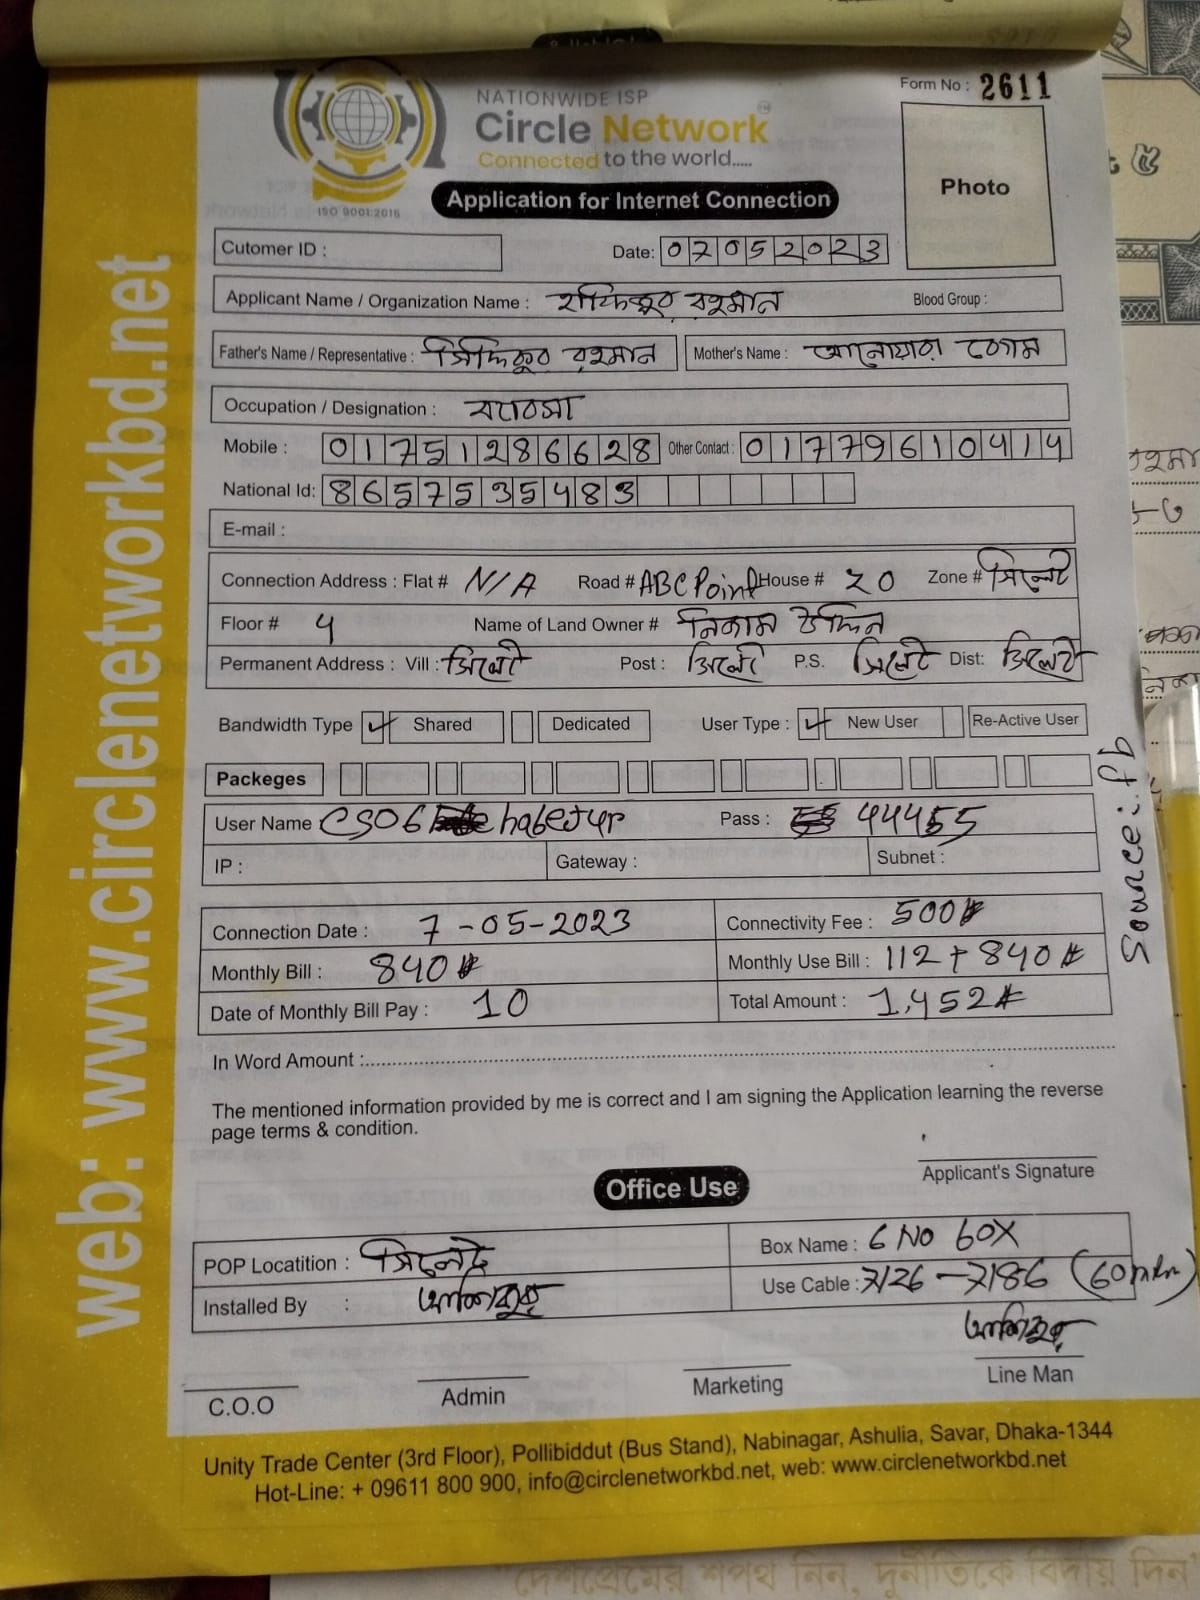 NATIONWIDE ISP
Circle Network
Connected to the world.....
ISO 9001:2015
Form No : 2611
Photo
Application for Internet Connection
Cutomer ID :
Date: 07052023
Applicant Name / Organization Name : হাফিজুর রহমান Blood Group :
Father's Name / Representative : সিদ্দিকুর রহমান Mother's Name : আনোয়ারা বেগম
Occupation / Designation : ব্যবসা
Mobile : 01751286628 Other Contact : 01779610414
National Id: 8657535483
E-mail :
Connection Address : Flat # N/A Road # ABC Point House # 20 Zone # সিলেট
Floor # 4 Name of Land Owner # নিজাম উদ্দিন
Permanent Address : Vill : সিলেট Post : সিলেট P.S. সিলেট Dist: সিলেট
Bandwidth Type Shared Dedicated User Type : New User Re-Active User
Packeges
User Name CS06 Pass : 44455
IP : Gateway : Subnet :
Connection Date : 7-05-2023 Connectivity Fee : 500৳
Monthly Bill : 840৳ Monthly Use Bill : 112 + 840৳
Date of Monthly Bill Pay : 10 Total Amount : 1,452৳
In Word Amount :
The mentioned information provided by me is correct and I am signing the Application learning the reverse
page terms & condition.
Applicant's Signature
Office Use
POP Locatition : সিলেট Box Name : 6 NO BOX
Installed By : আশিকুর Use Cable : 2126 - 2186
আশিকুর
C.O.O Admin Marketing Line Man
Unity Trade Center (3rd Floor), Pollibiddut (Bus Stand), Nabinagar, Ashulia, Savar, Dhaka-1344
Hot-Line: + 09611 800 900, info@circlenetworkbd.net, web: www.circlenetworkbd.net
web: www.circlenetworkbd.net
Source: fb
দেশপ্রেমের শপথ নিন, দুর্নীতিকে বিদায় দিন